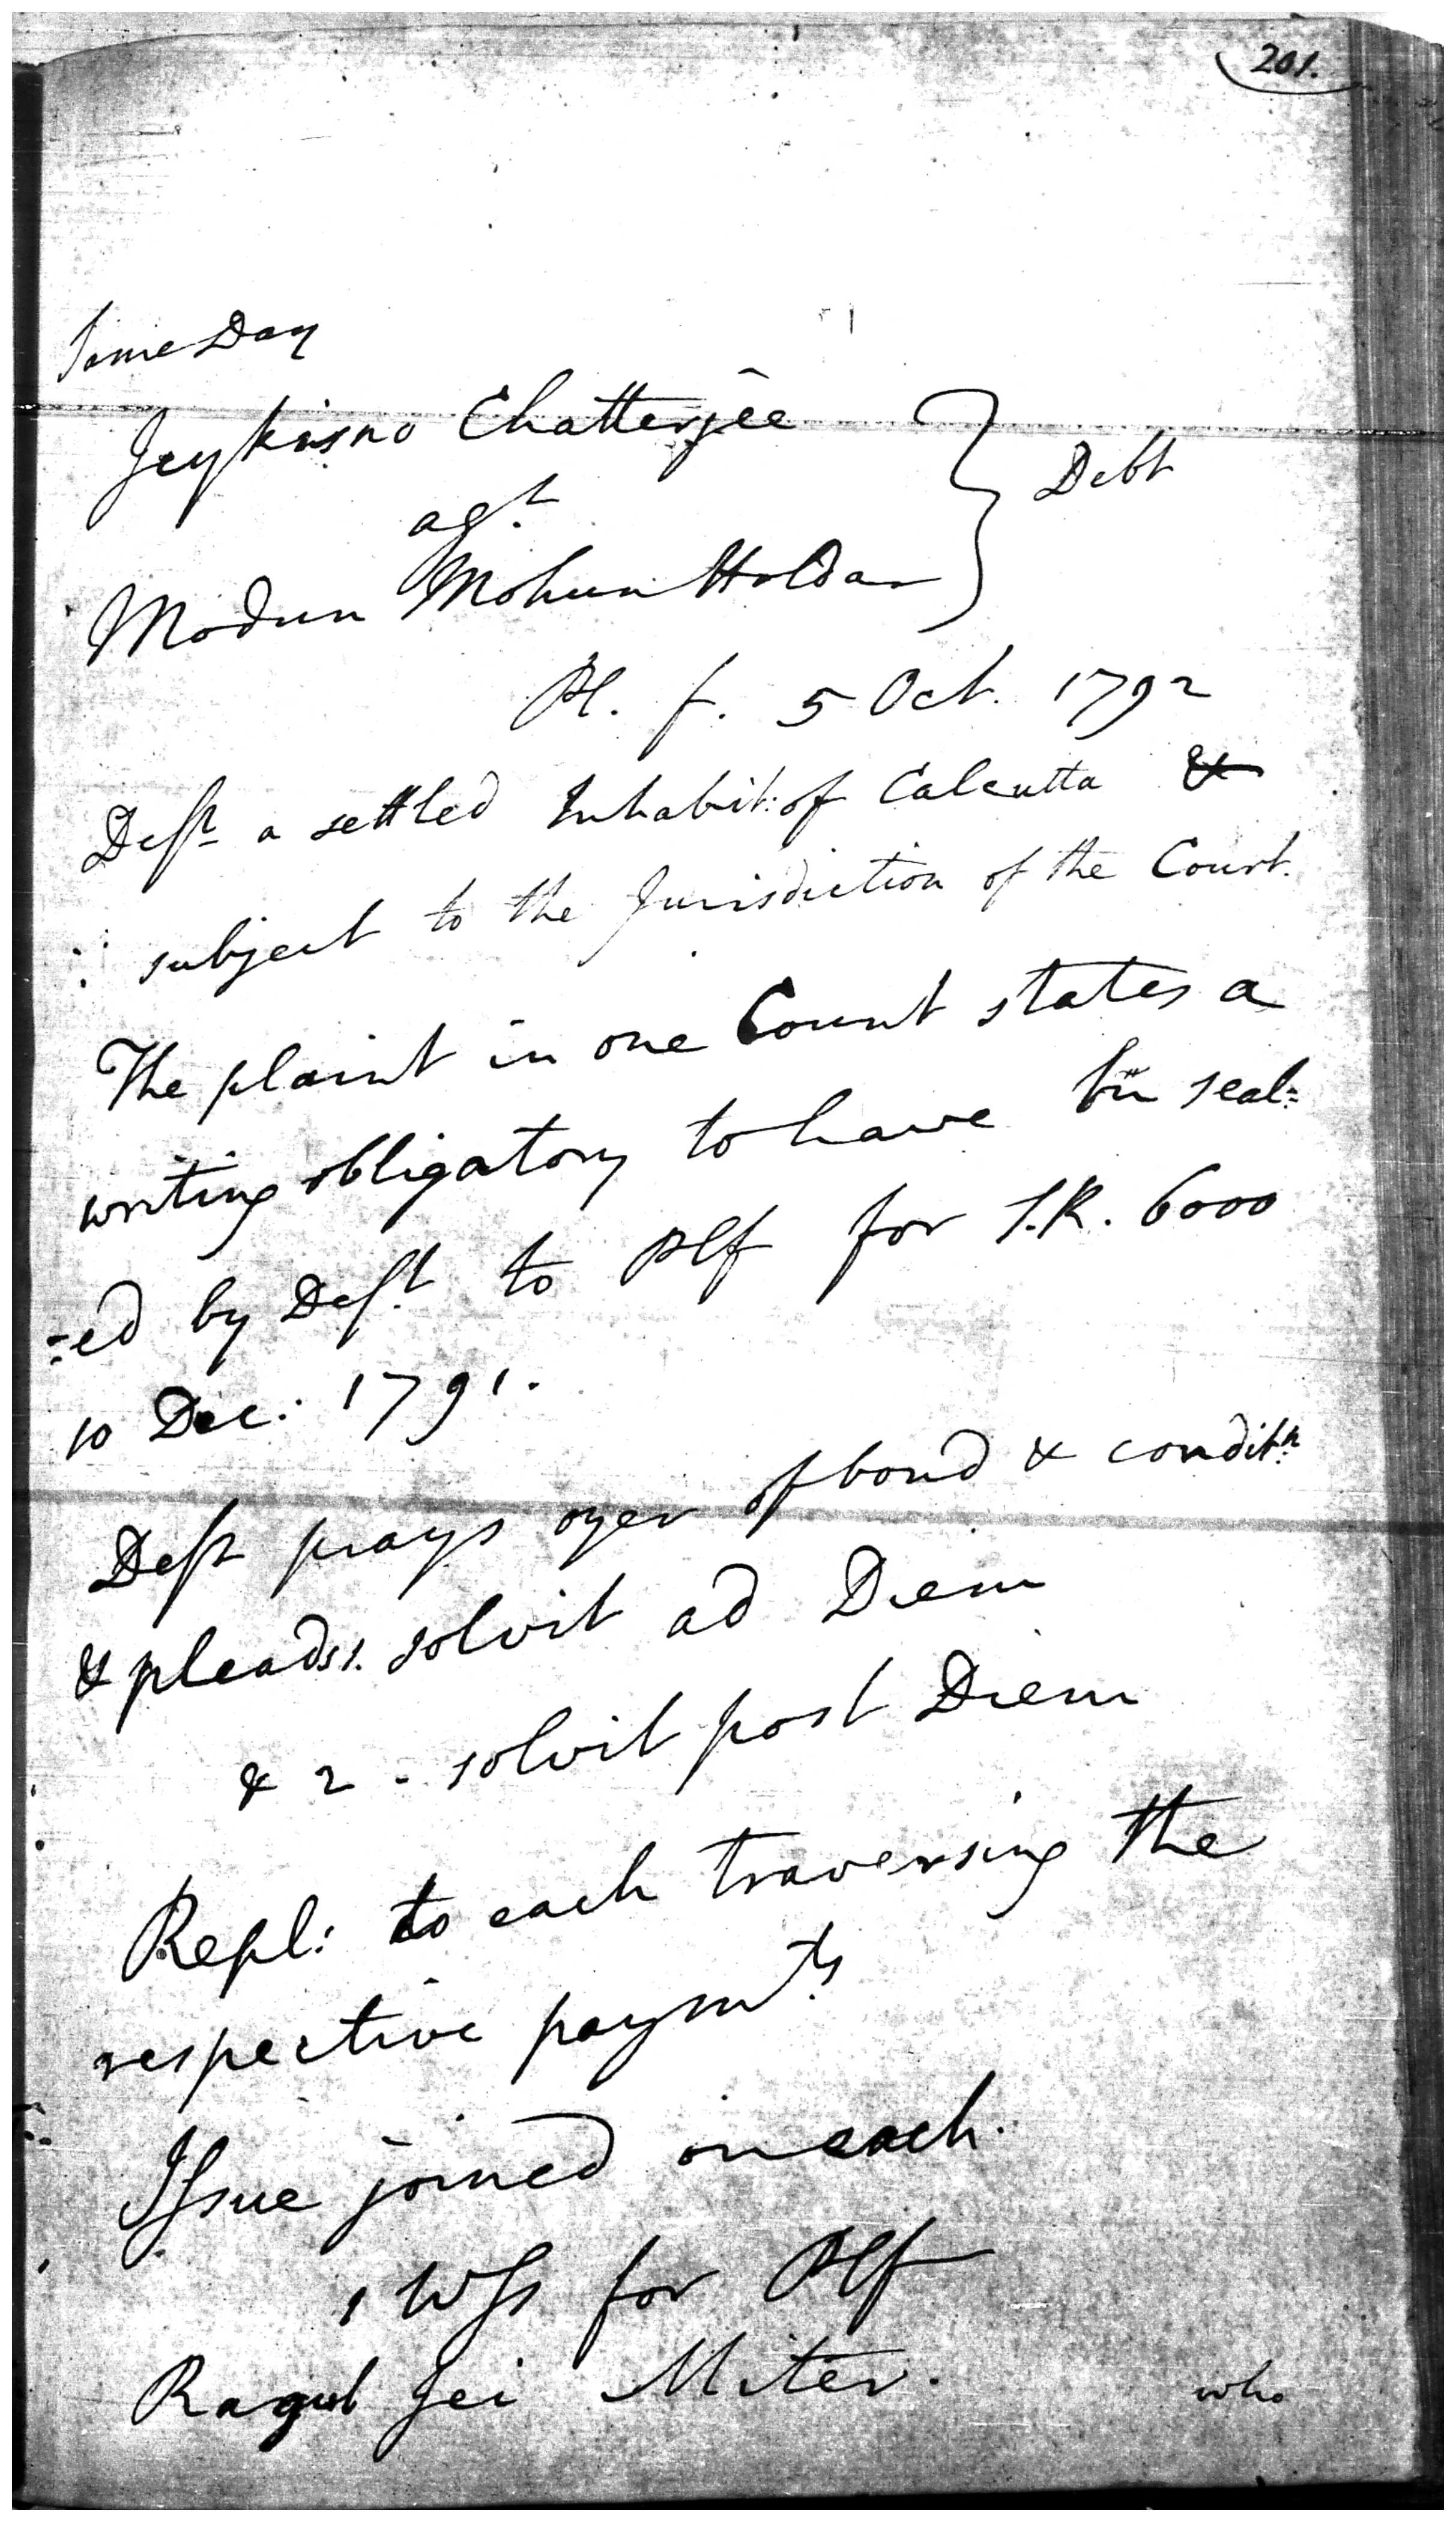 201.
Same Day
Jeykisno Chatterjee
agt.
Modun Mohun Holdar
Debt
Pl. f. 5 Oct. 1792
Deft a settled Inhabit: of Calcutta &
subject to the Jurisdiction of the Court.
The plaint in one Count states a
writing obligatory to have bn seal=
=ed by Deft. to Plf for S.R. 6000
10 Dec: 1791.
Deft prays oyer of bond & condit:n
& pleads 1. solvit ad Diem
& 2 - solvit post Diem
Repl: to each traversing the
respective paymts
Issue joined on each.
1 Wss for Plf
Jei Miter.
who